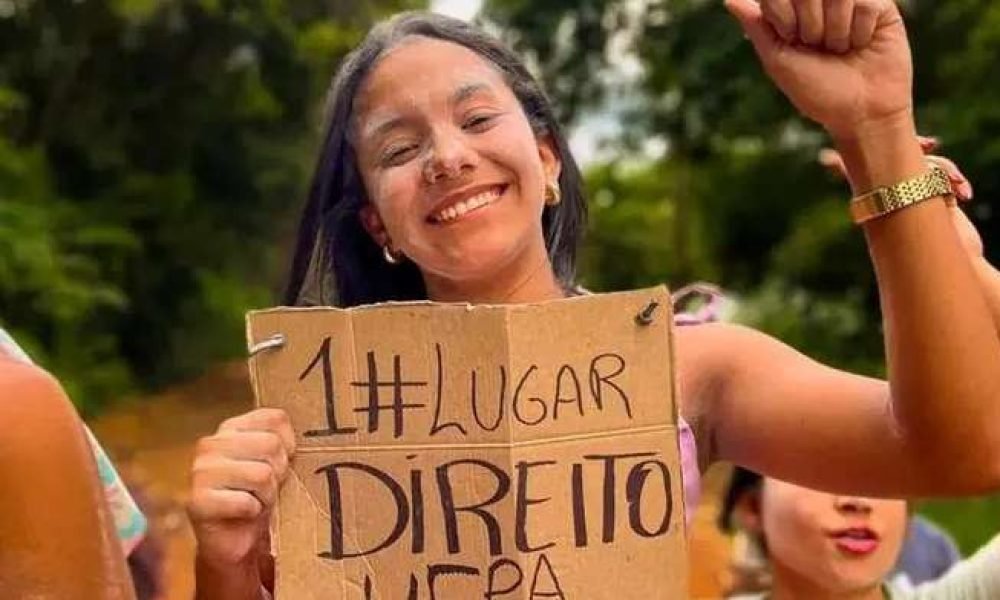 1#LUGAR
DIREITO
UFPA